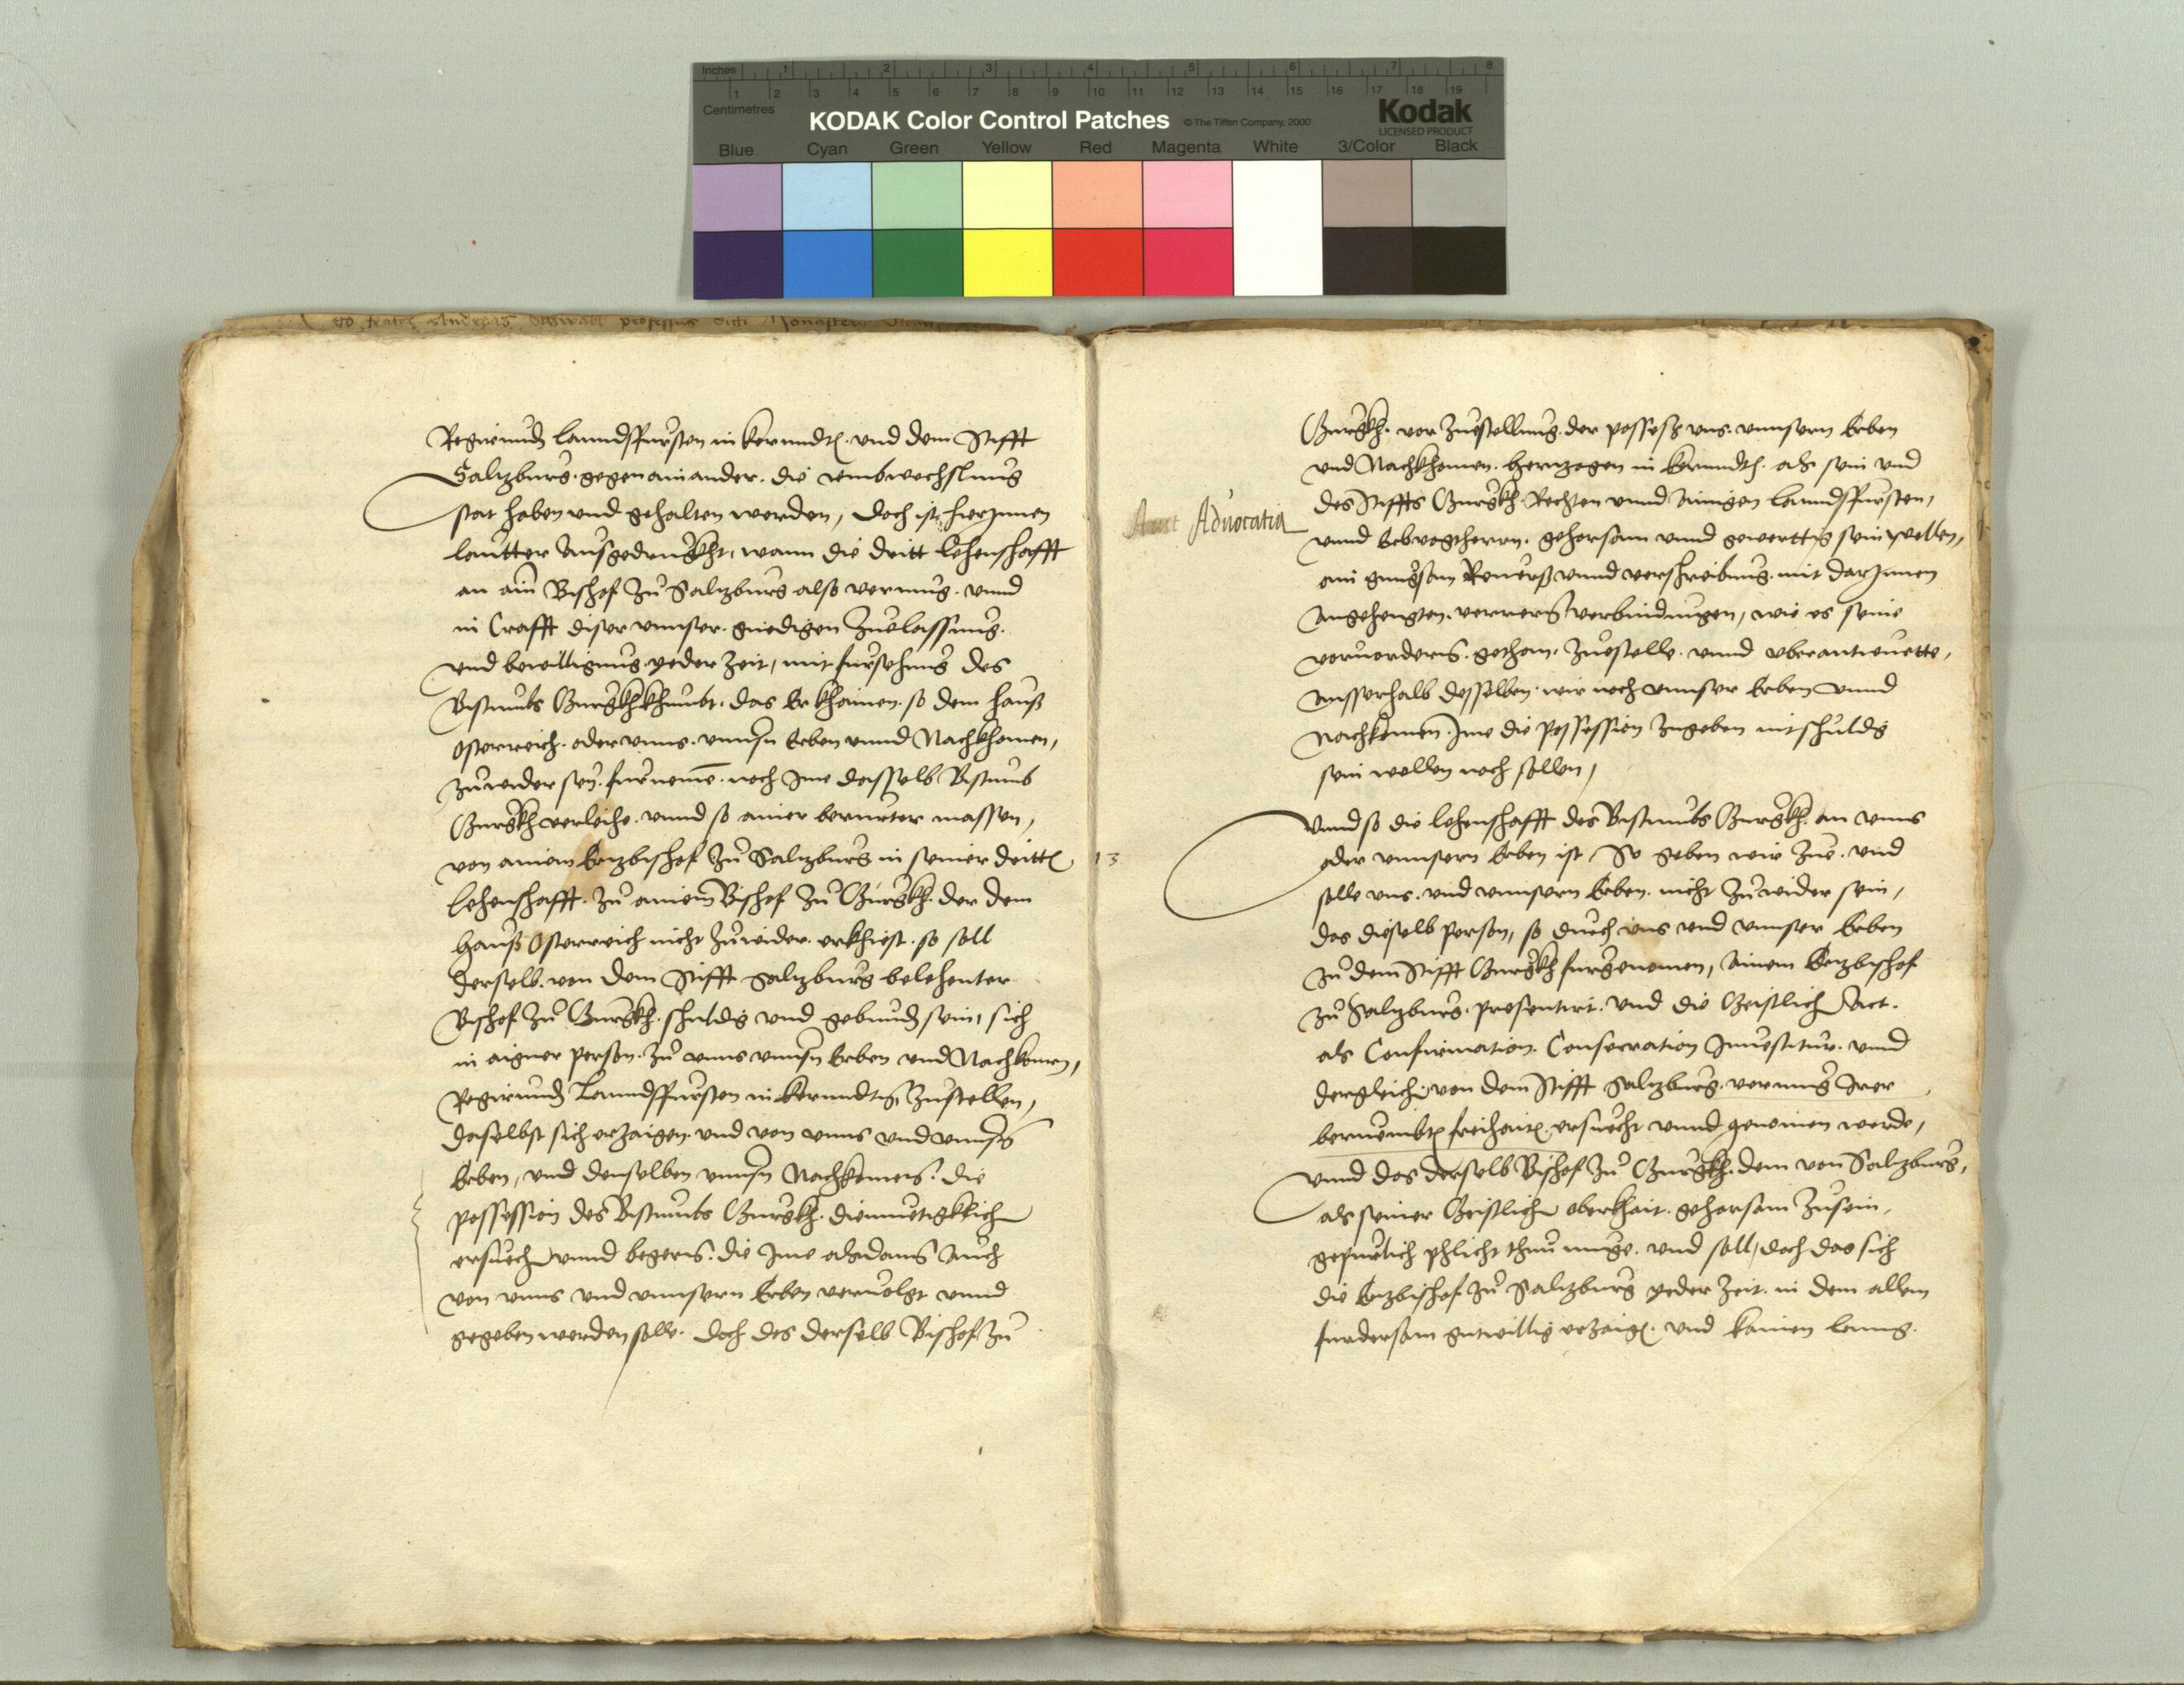 Inches 1 2 3 4 5 6 7 8
Centimetres 1 2 3 4 5 6 7 8 9 10 11 12 13 14 15 16 17 18 19
KODAK Color Control Patches © The Tiffen Company, 2000 Kodak
LICENSED PRODUCT
Blue Cyan Green Yellow Red Magenta White 3/Color Black
Regirund Lanndsfursten in Kernndten. und dem Stifft
Saltzburg. gegen ainander. die umbwechslung
stat haben und gehalten werden, doch ist hierInnen
lautter ausgedruckht, wann die dritt Lehenschafft
an ain Bischof zu Saltzburg also vermug. unnd
in Crafft diser unnser. gnedigen Zuelassung.
und bewilligung yeder Zeit, mit fursehung des
Bistumbs Gurgkh khumbt. das Er khainen. so dem hauß
Osterreich. oder unns. unnsern Erben unnd Nachkhomen,
zuwider sey. furneme. noch Ime dasselb Bistumb
Gurgkh verleihe. unnd so ainer berurter massen,
von ainem Ertzbischof zu Saltzburg in seiner dritten
Lehenschafft. zu ainem Bischof zu Gurgkh. der dem
hauß Osterreich nicht zuwider. erkhiest. so soll
derselb. von dem Stifft Saltzburg belehenter
Bischof zu Gurgkh. schuldig und gebunden sein, sich
in aigner person. zu unns unnsern Erben und Nachkomen,
Regirunden Lanndsfursten in Kernndten zustellen,
daselbst sich erzaigen. und von unns und unnsern
Erben, und denselben unnsern Nachkomen. die
possession des Bistumbs Gurgkh. diemuetigklich
ersuechen unnd begern. die Ime alsdann auch
von unns und unnsern Erben ervolgt unnd
gegeben werden solle. doch das derselb Bischof zu
13
Advocatia
Gurgkh. vor zuestellung. der possess uns. unnsern Erben
und Nachkhomen. Hertzogen in Kernndten. als sein und
des Stiffts Gurgkh Rechten unnd ainigen Lanndsfursten,
unnd Erbvogtherrn. gehorsam unnd gewerttig sein wellen,
ain gnugsam Reverß unnd verschreibung. mit darInnen
angehengten. verrern verbindungen, wie es seine
vorvordern. gethan. zuestelle. unnd uberantwurtte,
ausserhalb desselben. wir noch unnser Erben unnd
Nachkomen. Ime die possession zugeben nit schuldig
sein wellen noch sollen,
Unnd so die Lehenschafft des Bistumbs Gurgkh. an unns
oder unnsern Erben ist, So geben wir Zue. und
solle uns. und unnsern Erben. nicht zuwider sein,
das dieselb person, so durch uns und unnser Erben
zu dem Stifft Gurgkh furgenomen, ainem Ertzbischof
zu Saltzburg. presentirt. und die Geistlichen Act.
als Confirmation. Consecration Investitur. unnd
dergleichen. von dem Stifft Saltzburg. vermug Irer
beruembten freihaiten. ersuecht unnd genomen werde,
unnd das derselb Bischof zu Gurgkh. dem von Saltzburg,
als seiner Geistlichen oberkhait. gehorsam zusein,
gepurlich phlicht thun muge. und soll, doch das sich
die Ertzbischof zu Saltzburg yeder Zeit. in dem allem
furdersam gutwillig erzaigen. und kainen